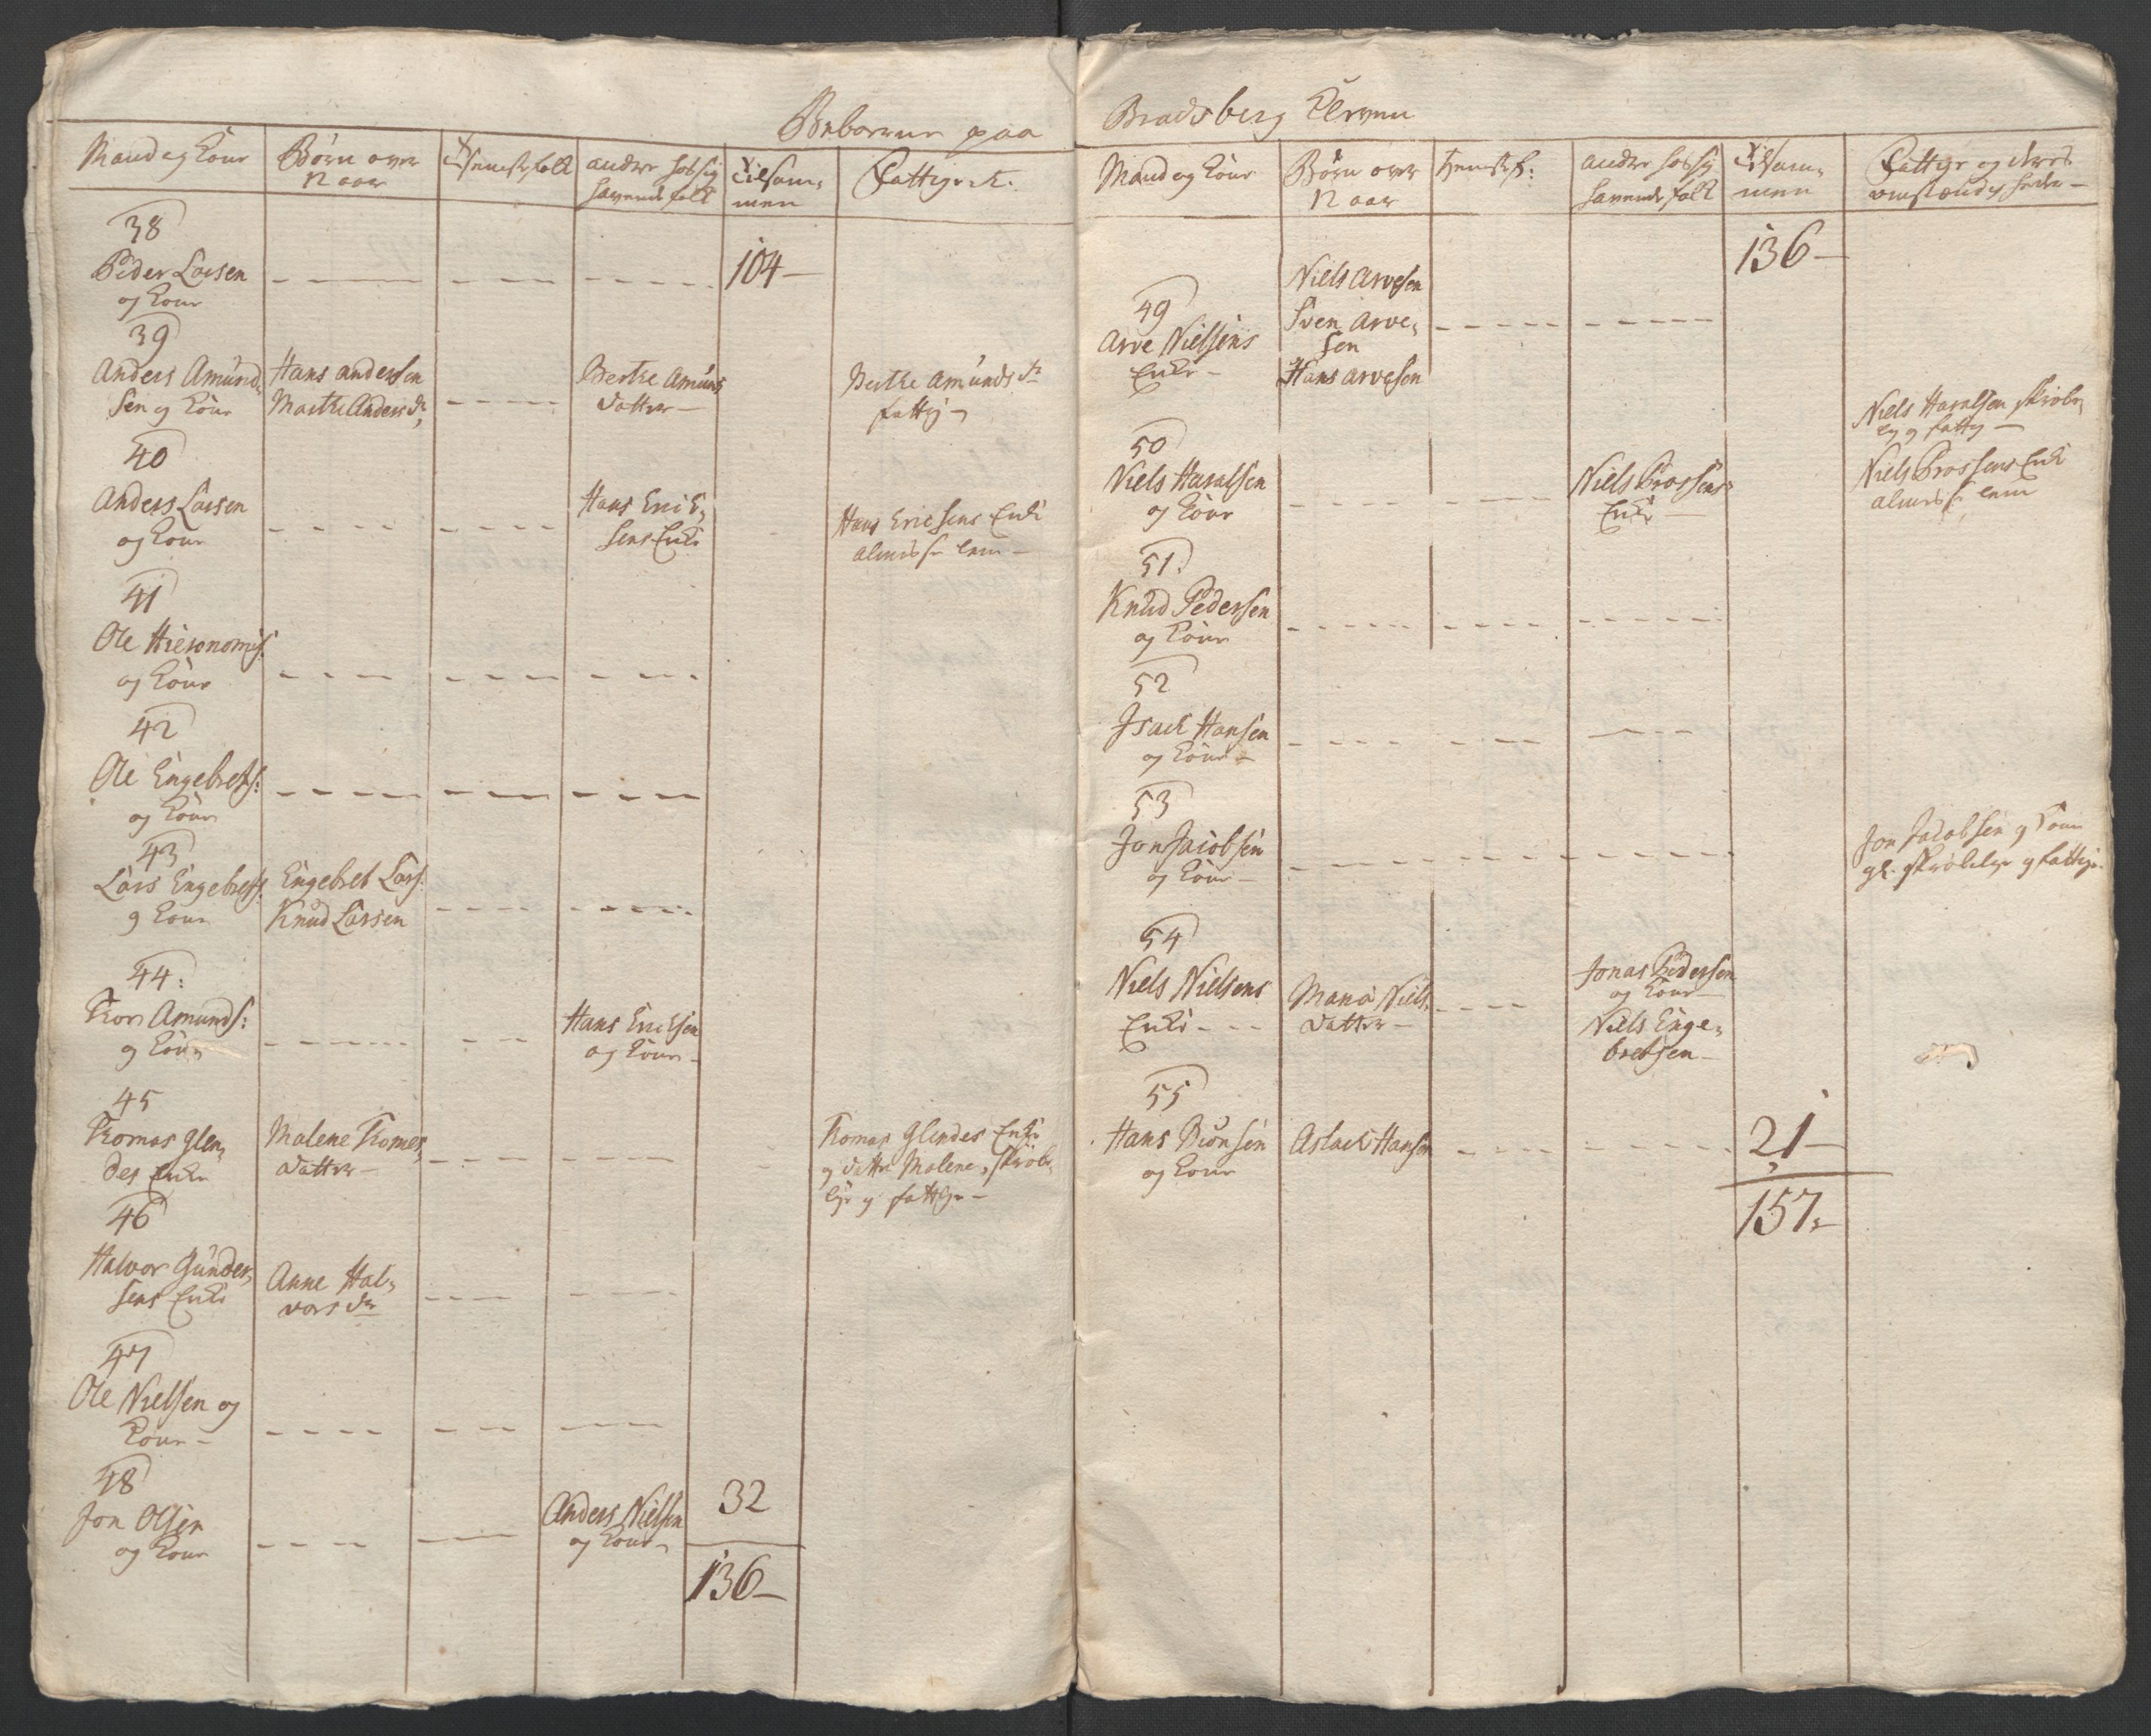 Beboerne paa
Mand og Kone
Børn over
12 aar
Tienestefolk
andre hos sig
havende folk
Tilsam-
men
Fattige
38
Peder Larsen
og Kone
104-
39
Anders Amund-
sen og Kone
Hans andersen
Marthe Anders dr
Berthe Amunds
datter
Berthe Amunds dr
fattig
40
Anders Larsen
og Kone
Hans Erick-
sens Enke
Hans Ericsens Enke
almisse lem
41
Ole Hieronomis:
og Kone
42
Ole Engebrets:
og Kone
43
Lars Engebrets:
og Kone
Engebret Lars:
Knud Larsen
44:
Thor Amunds:
og Kone
Hans Ericksen
og Kone
45
Thomas Glen-
des Enke
Malene Thomes
datter
Thomas Glendes Enke
og datter Malene, skrøbe-
lige og fattige
46
Halvor Gunder-
sens Enke
Anne Hal-
vors dr
47
Ole Nielsen og
Kone
48
Jon Olsen
og Kone
Anders Nielsen
og Kone
32
136-
Bradsberg Cleven
Mand og Kone
Børn over
12 aar
tienestef:
andre hos sig
havende folk
Tilsam-
men
Fattige og deres
omstændigheder
136-
49
Arve Nielsens
Enke
Niels Arvesen
Sven Arve-
sen
Hans Arvesen
50
Niels Haralsen
og Kone
Niels Brossens
Enke
Niels Haralsen skrøbe-
lig og fattig
Niels Brossens Enke
almisse lem
51.
Knud Pedersen
og Kone
52
Isack Hansen
og Kone
53
Jon Jacobsen
og Kone
Jon Jacobsen og Kone
gl. skrøbelige og fattige
54
Niels Nielsens
Enke
Maria Niels-
datter
Jonas Pedersen
og Kone
Niels Enge-
bretsen
55
Hans Biønsen
og Kone
Aslack Hansen
21-
157,-